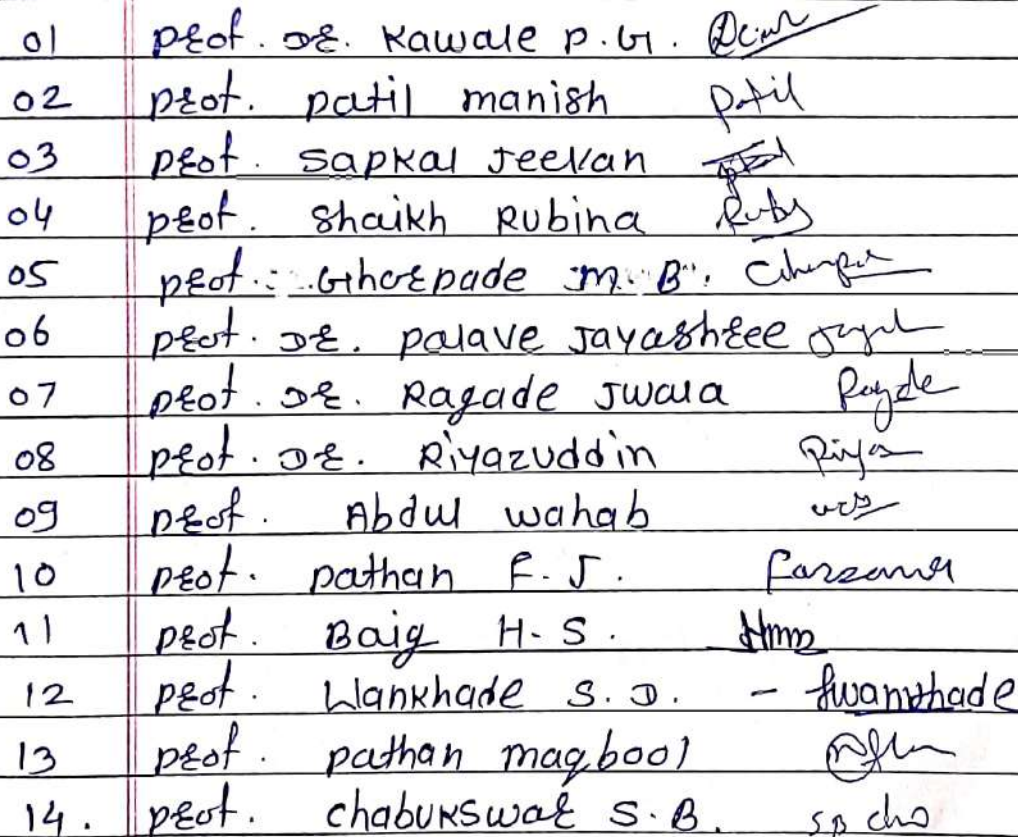 01 Prof. Dr. Kawale P.G.
02 Prof. Patil Manish Patil
03 Prof. Sapkal Jeevan
04 Prof. Shaikh Rubina Ruby
05 Prof. Ghorpade M.B.
06 Prof. Dr. Palave Jayashree
07 Prof. Dr. Ragade Jwala Ragde
08 Prof. Dr. Riyazuddin Riyaz
09 Prof. Abdul Wahab
10 Prof. Pathan F.J. Farzana
11 Prof. Baig H.S.
12 Prof. Wankhade S.D. - Swankhade
13 Prof. Pathan Maqbool
14. Prof. Chabukswar S.B.